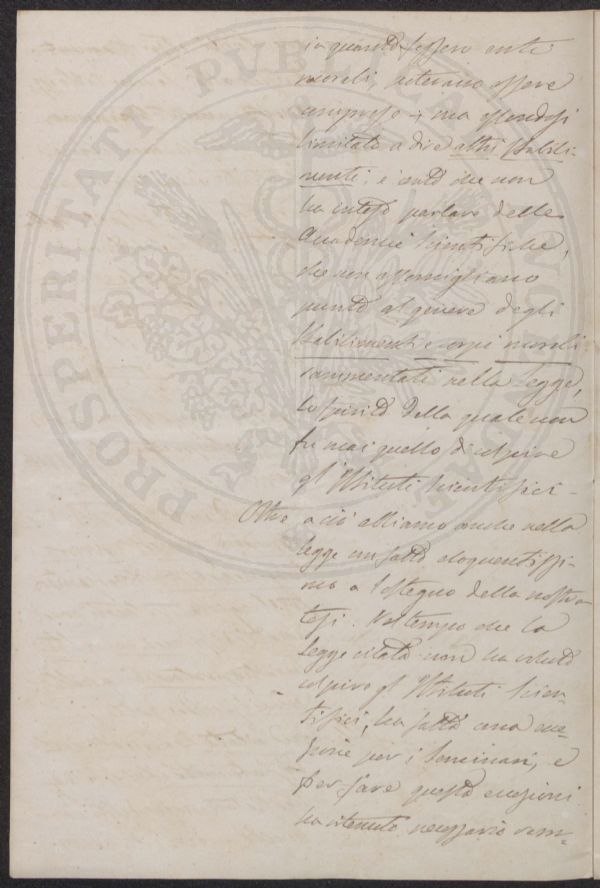 in quanto fossero enti
morali, potevano essere
comprese; ma essendosi
limitato a dire altri stabili-
menti, è certo che non
ha inteso parlare delle
Accademie scientifiche,
che non assomigliano
punto al genere degli
stabilimenti e corpi morali
rammentati nella legge,
lo spirito della quale non
fu mai quello di colpire
gl'Istituti scientifici -
Oltre a ciò abbiamo anche nella
legge un fatto eloquentissi-
mo a sostegno della nostra
tesi. Nel tempo che la
legge citata non ha voluto
colpire gl'Istituti scien-
tifici, ha fatto una ecce-
zione per i Seminari, e
per fare questa eccezioni
ha ritenuto necessario ram-
PROSPERITATI PVBLICAE AVGENDAE